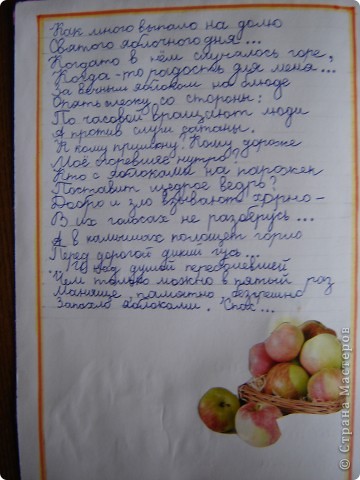 Как много выпало на долю
Святого яблочного дня...
Когдато в нём случалось горе,
Когда-то радость для меня...
За вечным яблоком на блюде
Опять слежу со стороны:
По часовой вращают люди
А против слуги сатаны.
К кому примкну? Кому дороже
Моё сгоревшее нутро?
Кто с яблоками на порожек
Поставит щедрое ведро?
Добро и зло взывают горно-
В их голосах не разберусь...
А в камышах полощет горло
Перед дорогой дикий гусь...
И над думой
Чем только можно в пятый раз
Маняще, памятно, безгрешно
Запахло яблоками. Спас...
© Страна Мастеров